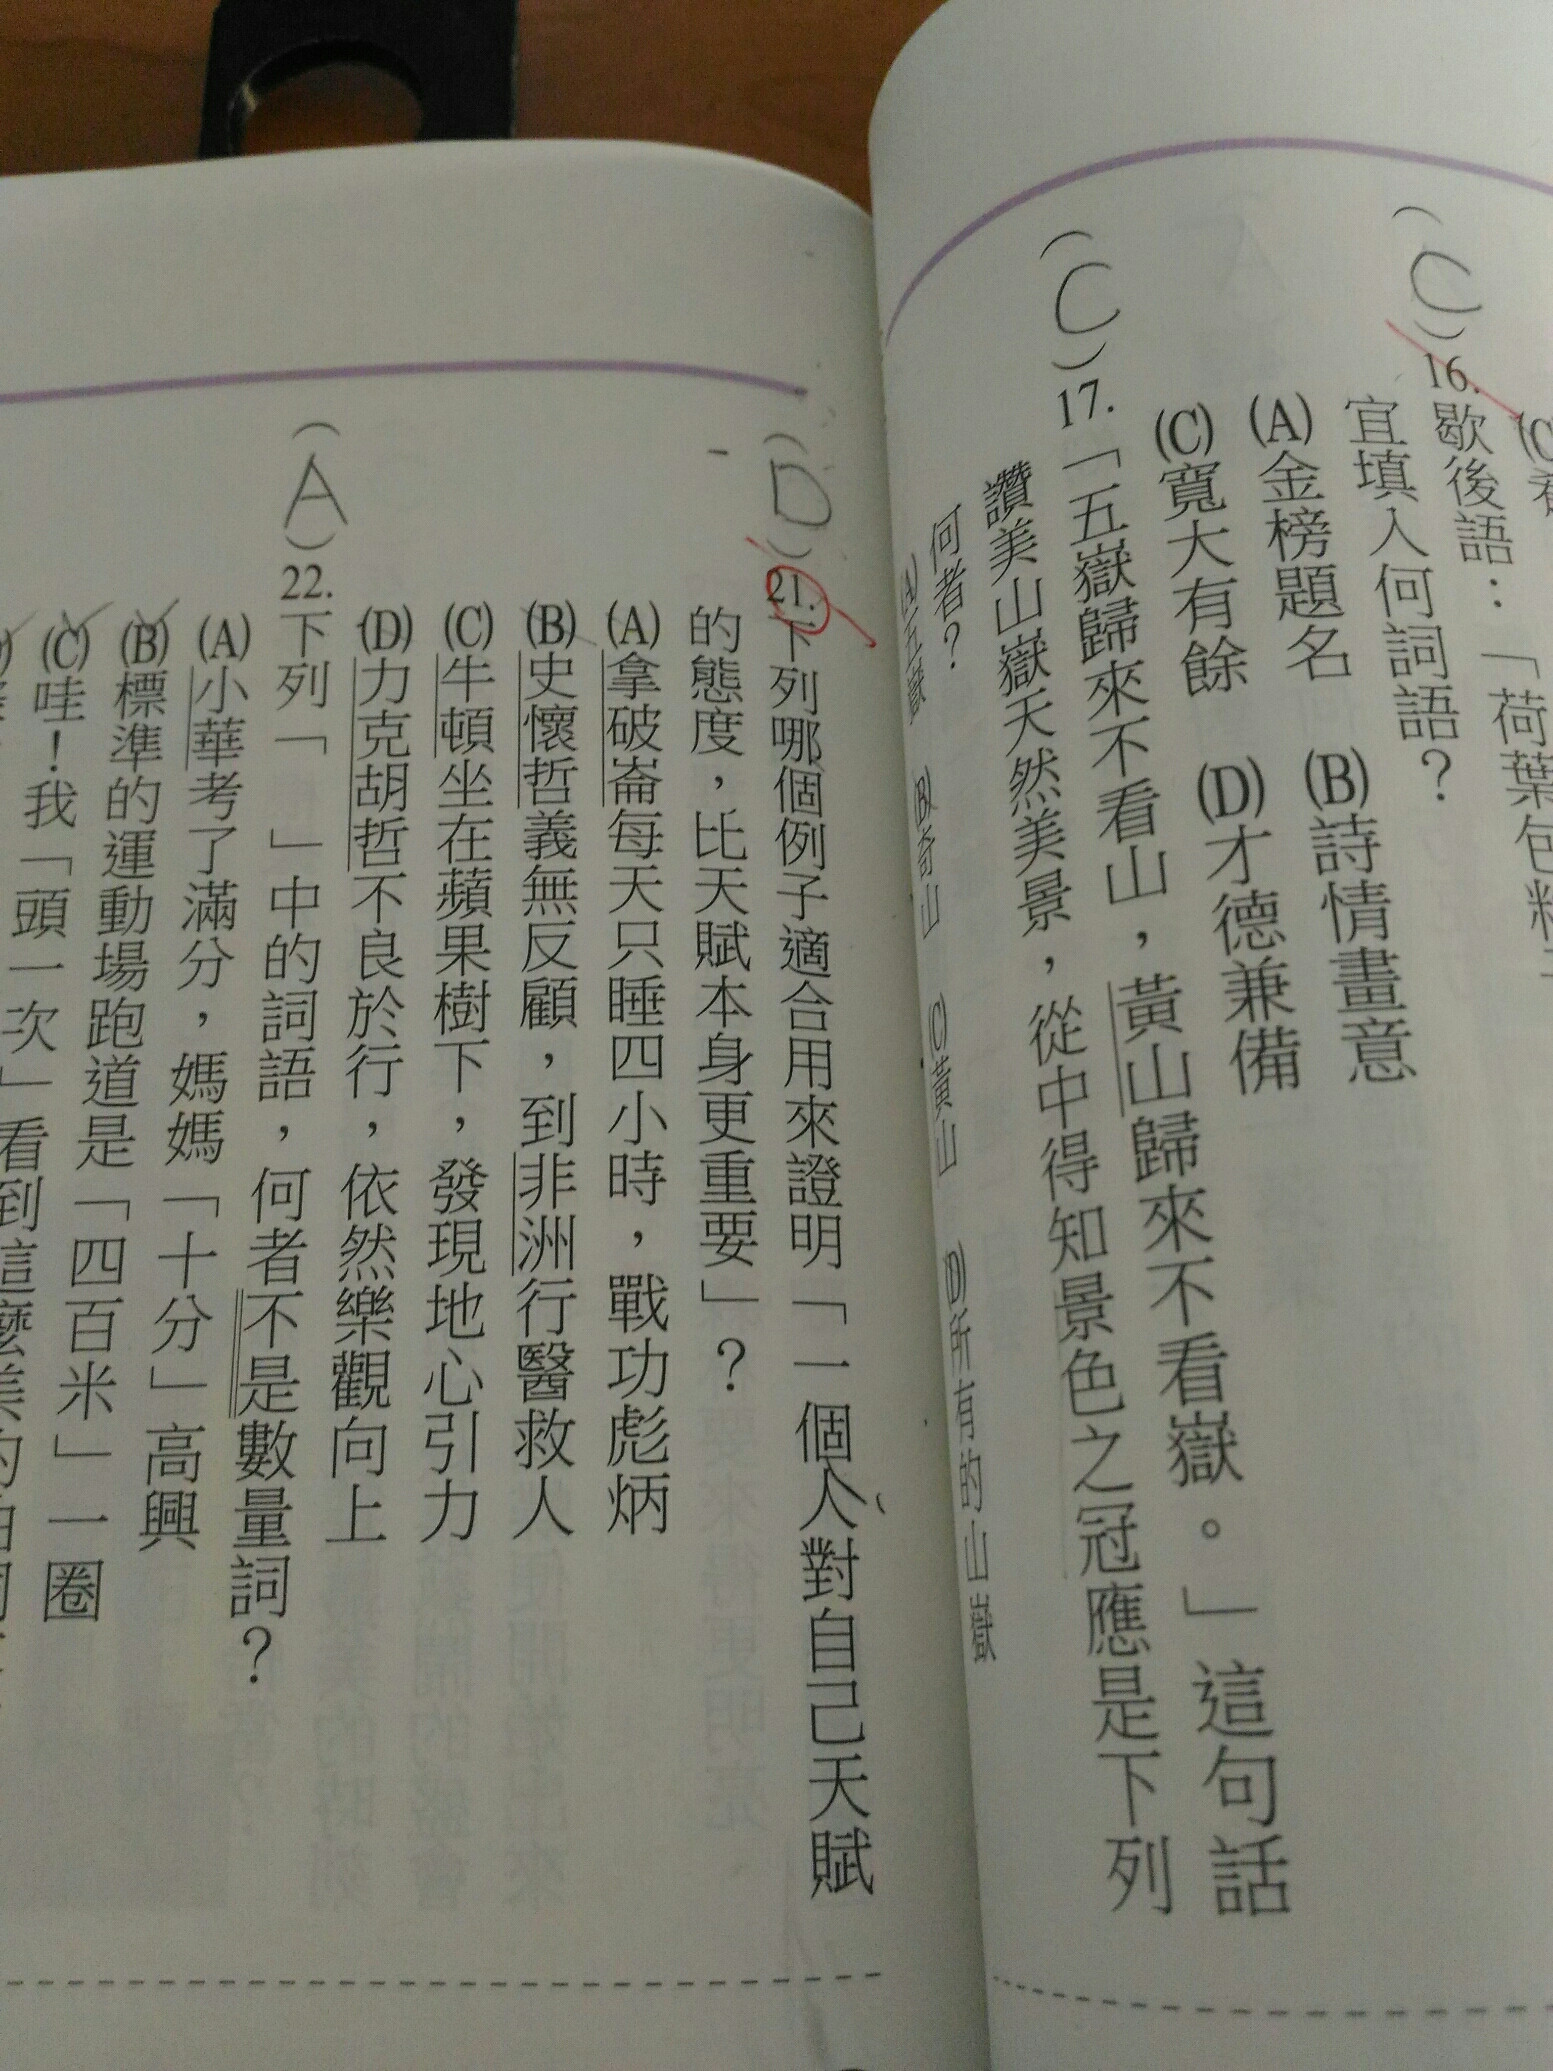 (C)
(C)16.歇後語:「荷葉包粽子
宜填入何詞語?
(A)金榜題名 (B)詩情畫意
(C)寬大有餘 (D)才德兼備
(C)17.「五嶽歸來不看山,黃山歸來不看嶽。」這句話
讚美山嶽天然美景,從中得知景色之冠應是下列
何者?
(A)五嶽 (B)奇山 (C)黃山 (D)所有的山嶽
(D)21.下列哪個例子適合用來證明「一個人對自己天賦
的態度,比天賦本身更重要」?
(A)拿破崙每天只睡四小時,戰功彪炳
(B)史懷哲義無反顧,到非洲行醫救人
(C)牛頓坐在蘋果樹下,發現地心引力
(D)力克胡哲不良於行,依然樂觀向上
(A)22.下列「 」中的詞語,何者不是數量詞?
(A)小華考了滿分,媽媽「十分」高興
(B)標準的運動場跑道是「四百米」一圈
(C)哇!我「頭一次」看到這麼美的